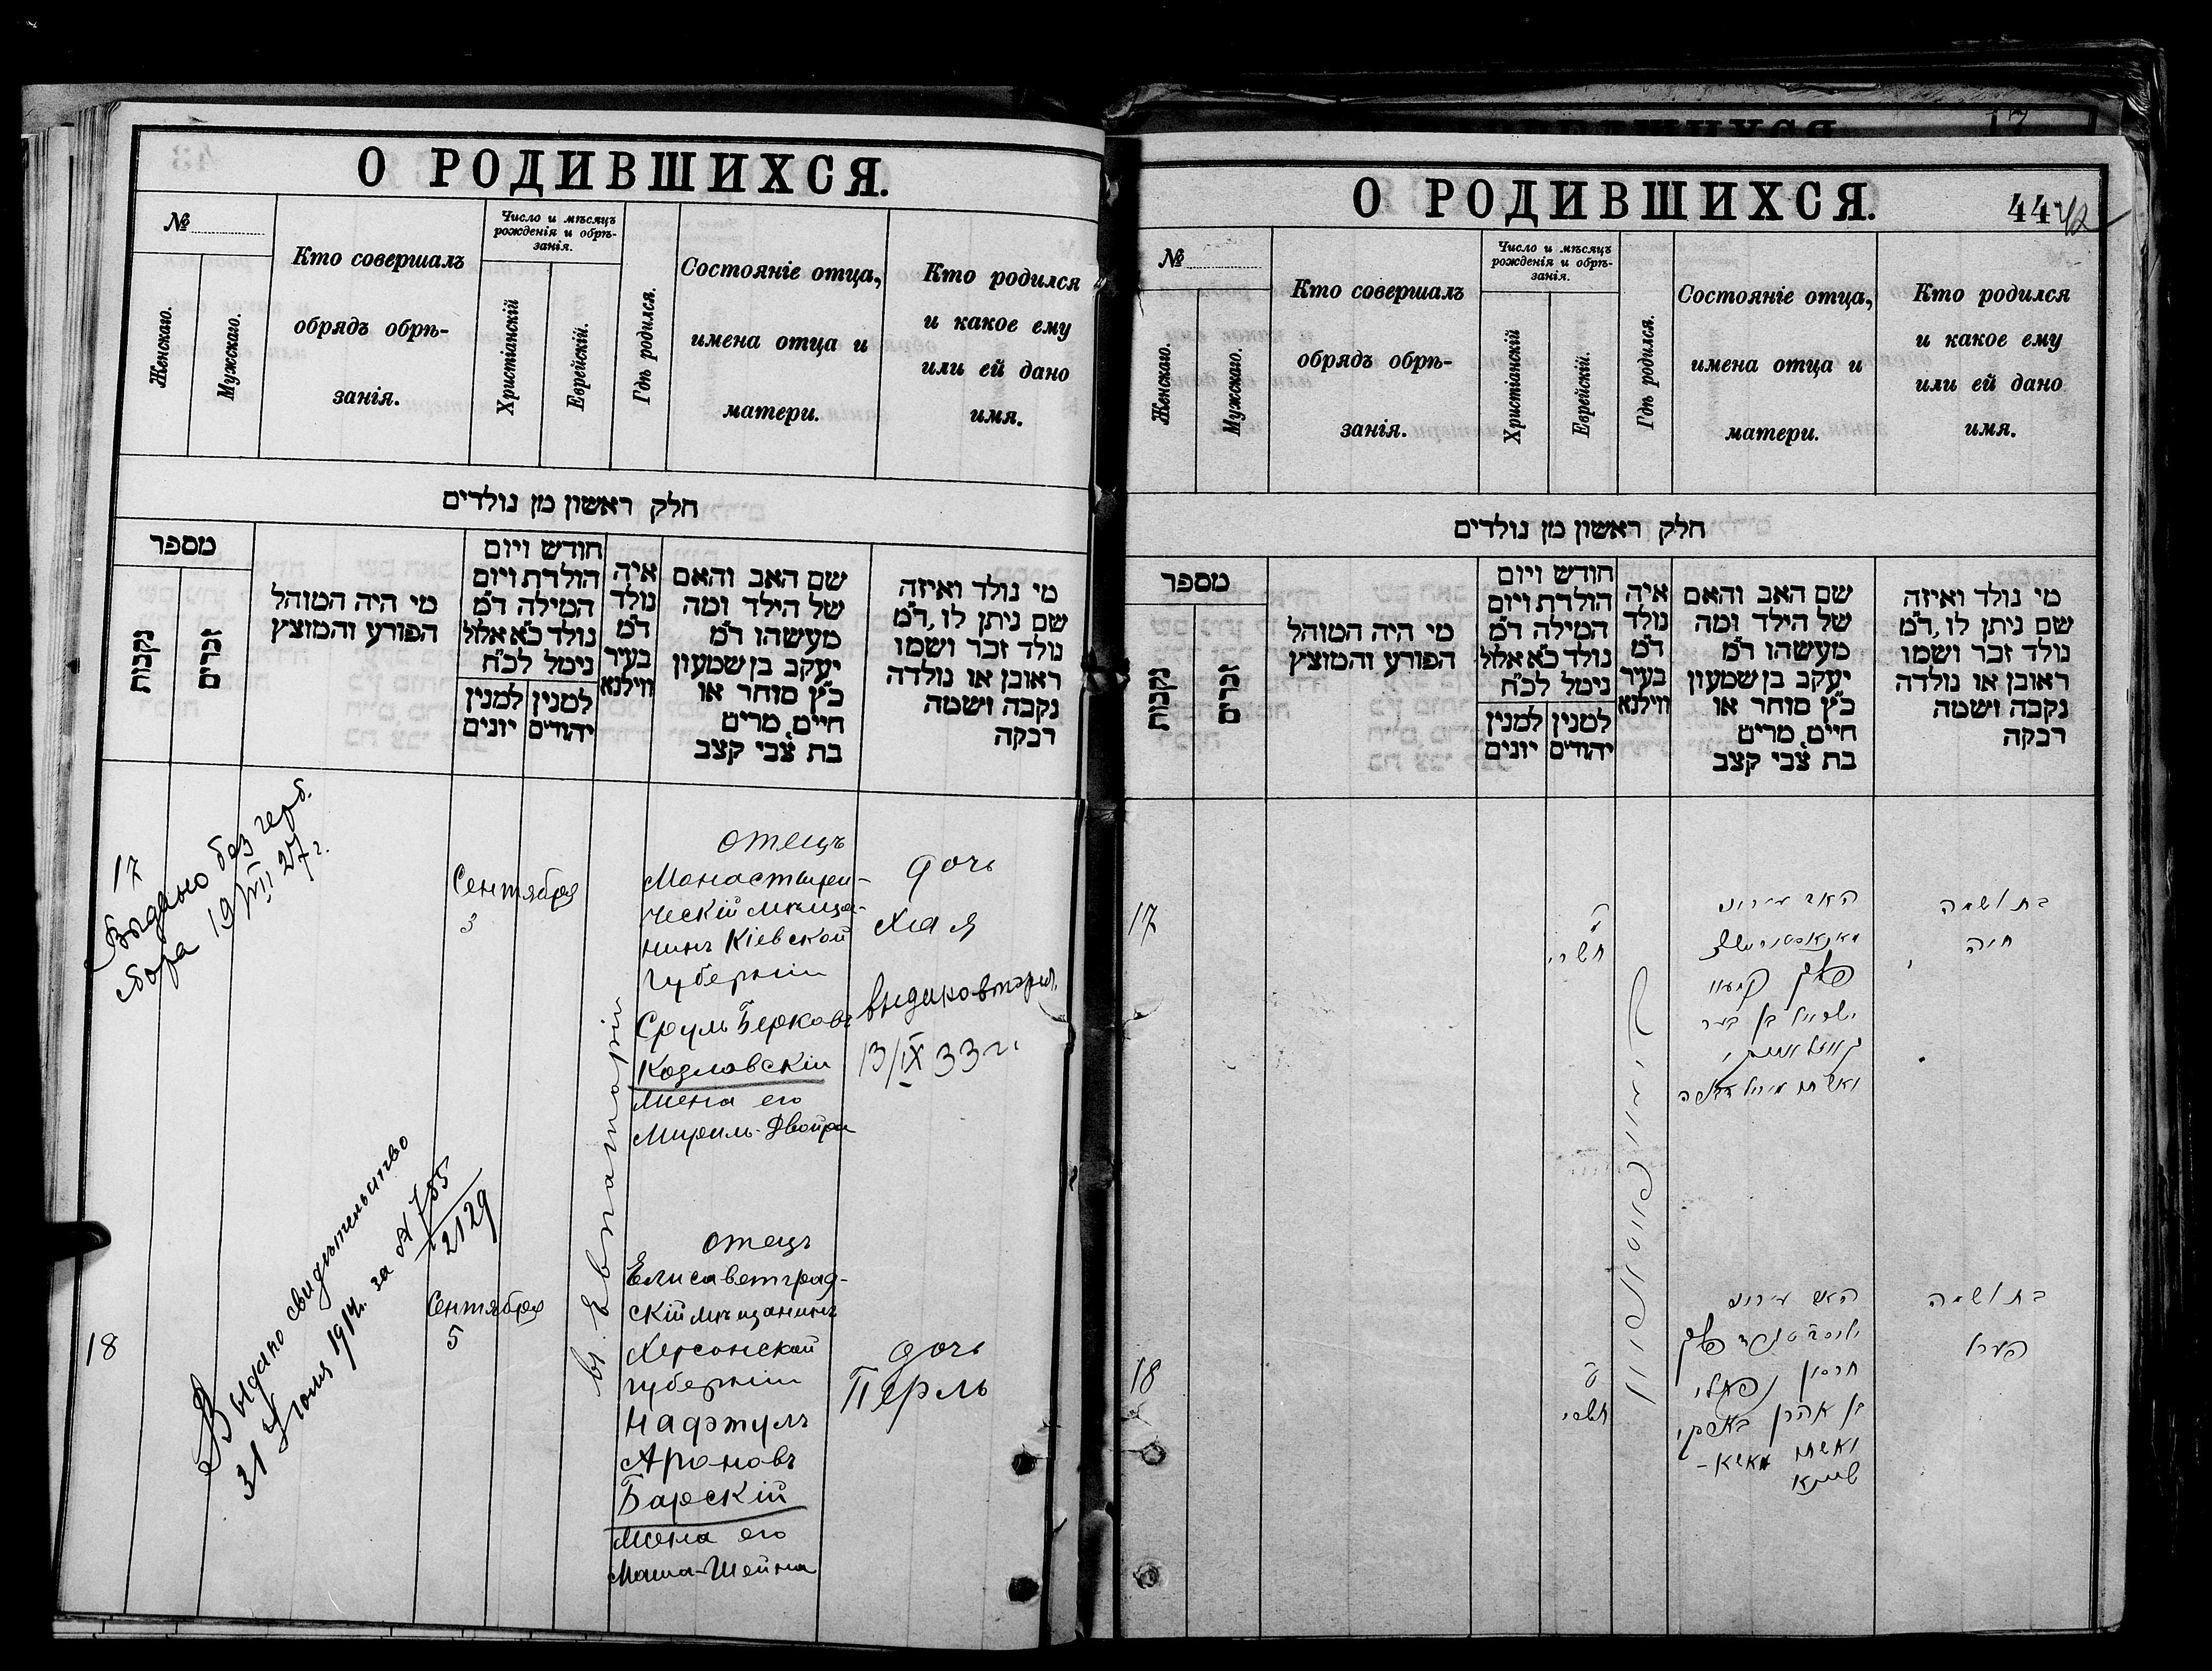 О РОДИВШИХСЯ.
№
Женскаго.
Мужскаго.
Кто совершалъ
обрядъ обрѣ-
занія.
Число и мѣсяцъ
рожденія и обрѣ-
занія.
Христіанскій
Еврейскій.
Гдѣ родился.
Состояніе отца,
имена отца и
матери.
Кто родился
и какое ему
или ей дано
имя.
חלק ראשון מן נולדים
מספר
נקבות
זכרים
מי היה המוהל
הפורע והמוצץ
חודש ויום
הולדת ויום
המילה ד״מ
נולד כ״א אלול
נימל לכ״ח
למנין
יהודים
למנין
יונים
איה
נולד
ד״מ
בעיר
ווילנא
שם האב והאם
של הילד ומה
מעשהו ד״מ
יעקב בן שמעון
כ״ץ סוחר או
חיים, מרים
בת צבי קצב
מי נולד ואיזה
שם ניתן לו, ד״מ
נולד זכר ושמו
ראובן או נולדה
נקבה ושמה
רבקה
17
Выдано без герб.
сбора 19/VII 27 г.
Сентября
3
отецъ
Монастыри-
ческій мѣща-
нинъ Кіевской
губерніи
Сруль Берковъ
Козловскій
жена его
Мириль-Двойра
дочь
Хая
13/IX 33 г.
в г. Евпаторіи
18
Выдано свидѣтельство
31 Іюля 1914г. за № 755
2129
Сентября
5
отецъ
Елисаветград-
скій мѣщанинъ
Херсонской
губерніи
Нафтуль
Ароновъ
Барскій
жена его
Маша-Шейна
дочь
Перль
О РОДИВШИХСЯ.
44
42
№
Женскаго.
Мужскаго.
Кто совершалъ
обрядъ обрѣ-
занія.
Число и мѣсяцъ
рожденія и обрѣ-
занія.
Христіанскій
Еврейскій.
Гдѣ родился.
Состояніе отца,
имена отца и
матери.
Кто родился
и какое ему
или ей дано
имя.
חלק ראשון מן נולדים
מספר
נקבות
זכרים
מי היה המוהל
הפורע והמוצץ
חודש ויום
הולדת ויום
המילה ד״מ
נולד כ״א אלול
נימל לכ״ח
למנין
יהודים
למנין
יונים
איה
נולד
ד״מ
בעיר
ווילנא
שם האב והאם
של הילד ומה
מעשהו ד״מ
יעקב בן שמעון
כ״ץ סוחר או
חיים, מרים
בת צבי קצב
מי נולד ואיזה
שם ניתן לו, ד״מ
נולד זכר ושמו
ראובן או נולדה
נקבה ושמה
רבקה
17
תשרי
פלך קיעוו
ישראל בן בער
בת ושמה
חיה
18
תשרי
פלך
חרסון נפתלי
בן אהרן בארסקי
ואשתו מאשא-
שיינא
בת ושמה
פערל